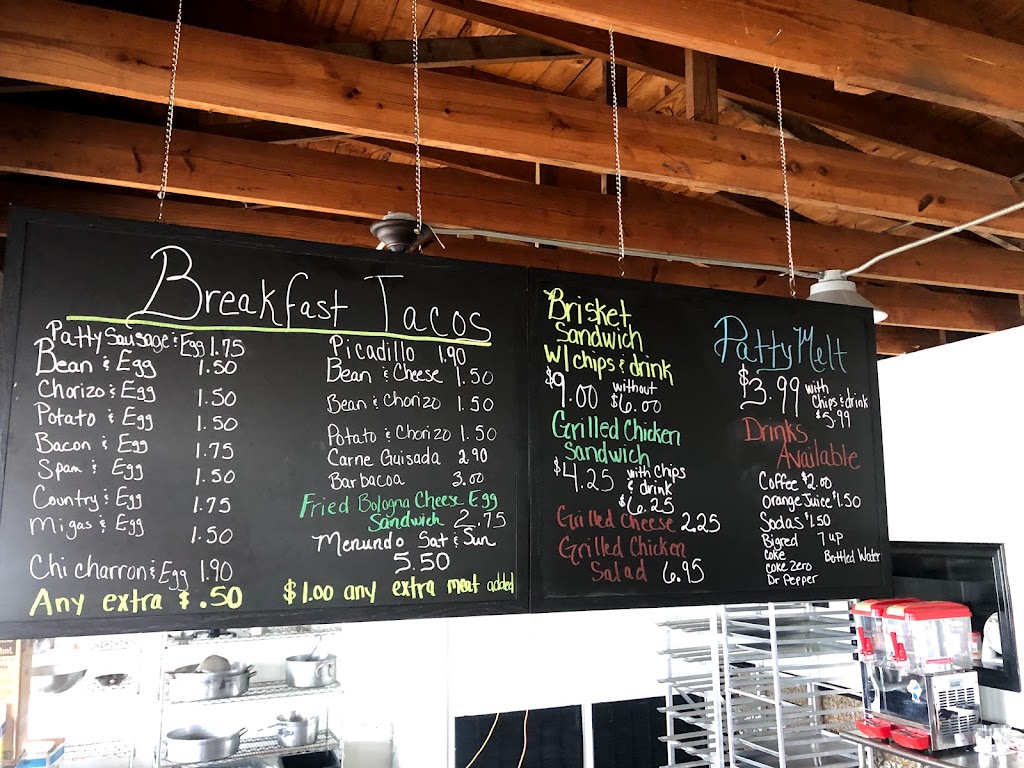 Breakfast Tacos
Patty Sausage & Egg 1.75
Bean & Egg 1.50
Chorizo & Egg 1.50
Potato & Egg 1.50
Bacon & Egg 1.75
Spam & Egg 1.50
Country & Egg 1.75
Migas & Egg 1.50
Chicharron & Egg 1.90
Any extra $.50
Picadillo 1.90
Bean & Cheese 1.50
Bean & Chorizo 1.50
Potato & Chorizo 1.50
Carne Guisada 2.90
Barbacoa 3.00
Fried Bologna Cheese Egg
Sandwich 2.75
Menundo Sat & Sun
5.50
$1.00 any extra meat added
Brisket
Sandwich
W/ chips & drink
$9.00 without
$6.00
Grilled Chicken
Sandwich
$4.25 with chips
& drink
$6.25
Grilled Cheese 2.25
Grilled Chicken
Salad 6.95
Patty Melt
$3.99 with
chips & drink
$5.99
Drinks
Available
Coffee $2.00
Orange Juice $1.50
Sodas $1.50
Bigred 7 up
Coke Bottled Water
Coke zero
Dr Pepper